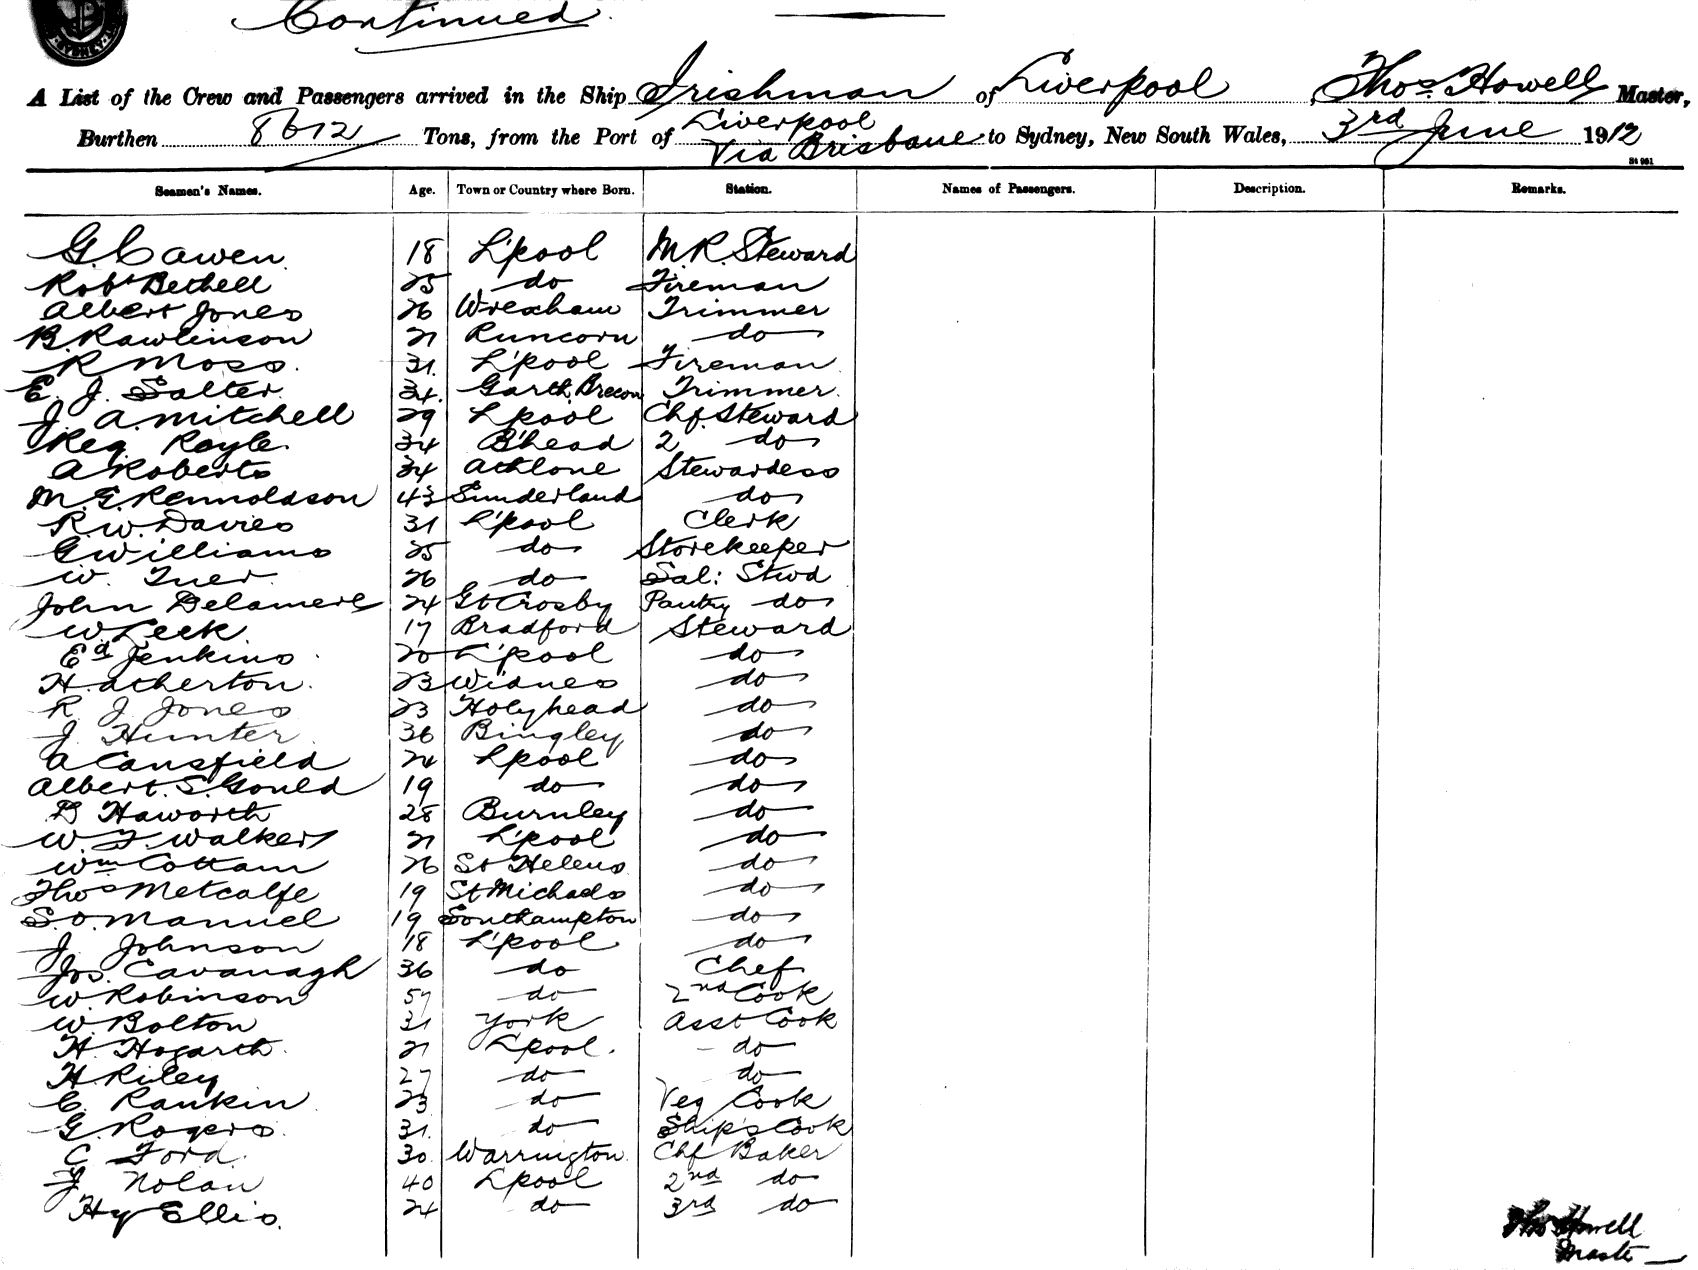 Continued
A List of the Crew and Passengers arrived in the Ship Irishman of Liverpool, Thos. Howell Master,
Burthen 8612 Tons, from the Port of Liverpool Via Brisbane to Sydney, New South Wales, 3rd June 1912
St 961
Seamen's Names. Age. Town or Country where Born. Station. Names of Passengers. Description. Remarks.
G. Cawen 18 L'pool M.R. Steward
Robt Bethell 25 do Fireman
Albert Jones 26 Wrexham Trimmer
B. Rawlinson 21 Runcorn do
R Moss. 31. L'pool Fireman
E. J. Salter 34. Garth, Brecon Trimmer.
J. A. Mitchell 29 L'pool Chf. Steward
Reg Royle. 34 B'head 2 do
A Roberts 34 Athlone Stewardess
M. E. Rennoldson 43 Sunderland do
R. W. Davies 31 L'pool Clerk
G Williams 25 do Storekeeper
W. 26 do Sal: Stwd
John Delamere 24 Gt Crosby Pantry do
W. Leek. 17 Bradford Steward
Ed Jenkins 20 L'pool do
H. Atherton. 23 Widnes do
R J Jones 23 Holyhead do
J. Hunter 36 Bingley do
A Cansfield 24 L'pool do
Albert. S. Gould 19 do do
D Haworth 28 Burnley do
W. F. Walker 21 L'pool do
Wm Cottam 26 St Helens do
Thos Metcalfe 19 St Michaels do
S. O. Manuel 19 Southampton do
J. Johnson 18 L'pool do
Jos. Cavanagh 36 do Chef
W. Robinson 57 do 2nd Cook
W. Bolton 31 York Asst Cook
H. Hogarth. 21 L'pool. do
H. Riley 27 do do
C. Rankin 23 do Veg Cook
G. Rogers. 31. do Ship's Cook
C Ford. 30. Warrington. Chf Baker
J. Nolan 40 L'pool 2nd do
Hy Ellis. 24 do 3rd do
Thos Howell
Master